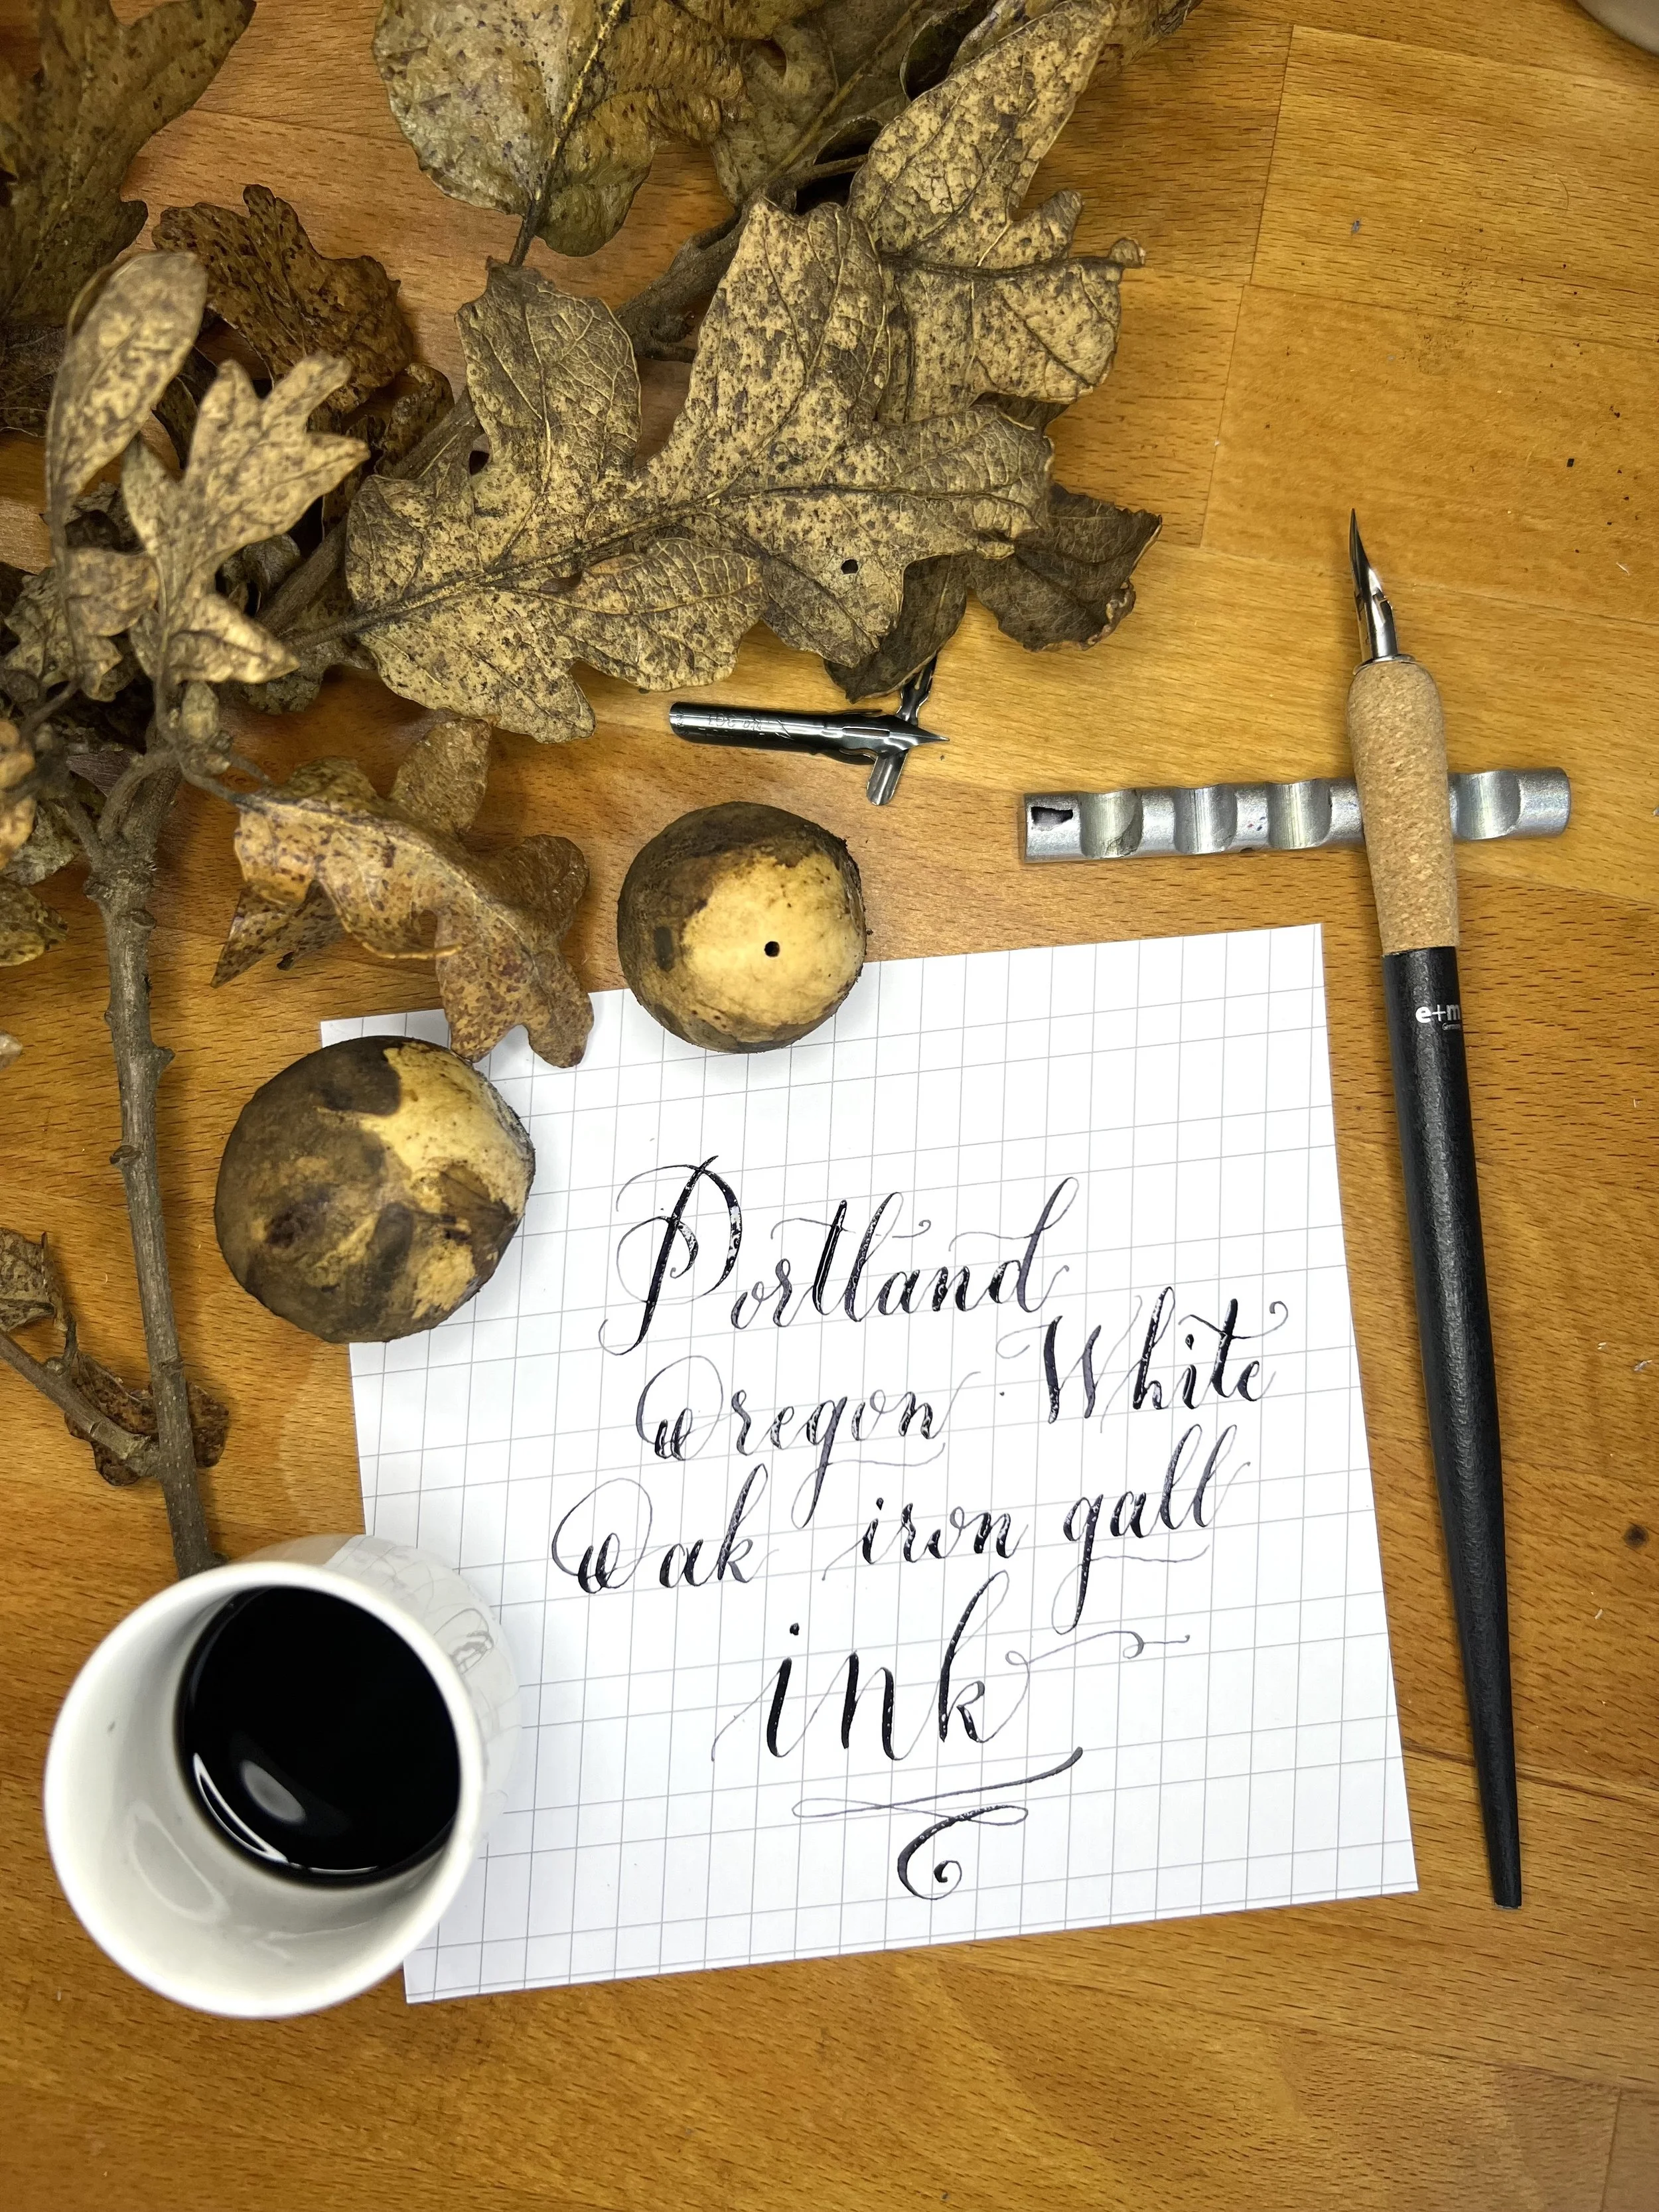 Portland
Oregon White
Oak iron gall
ink
e+m